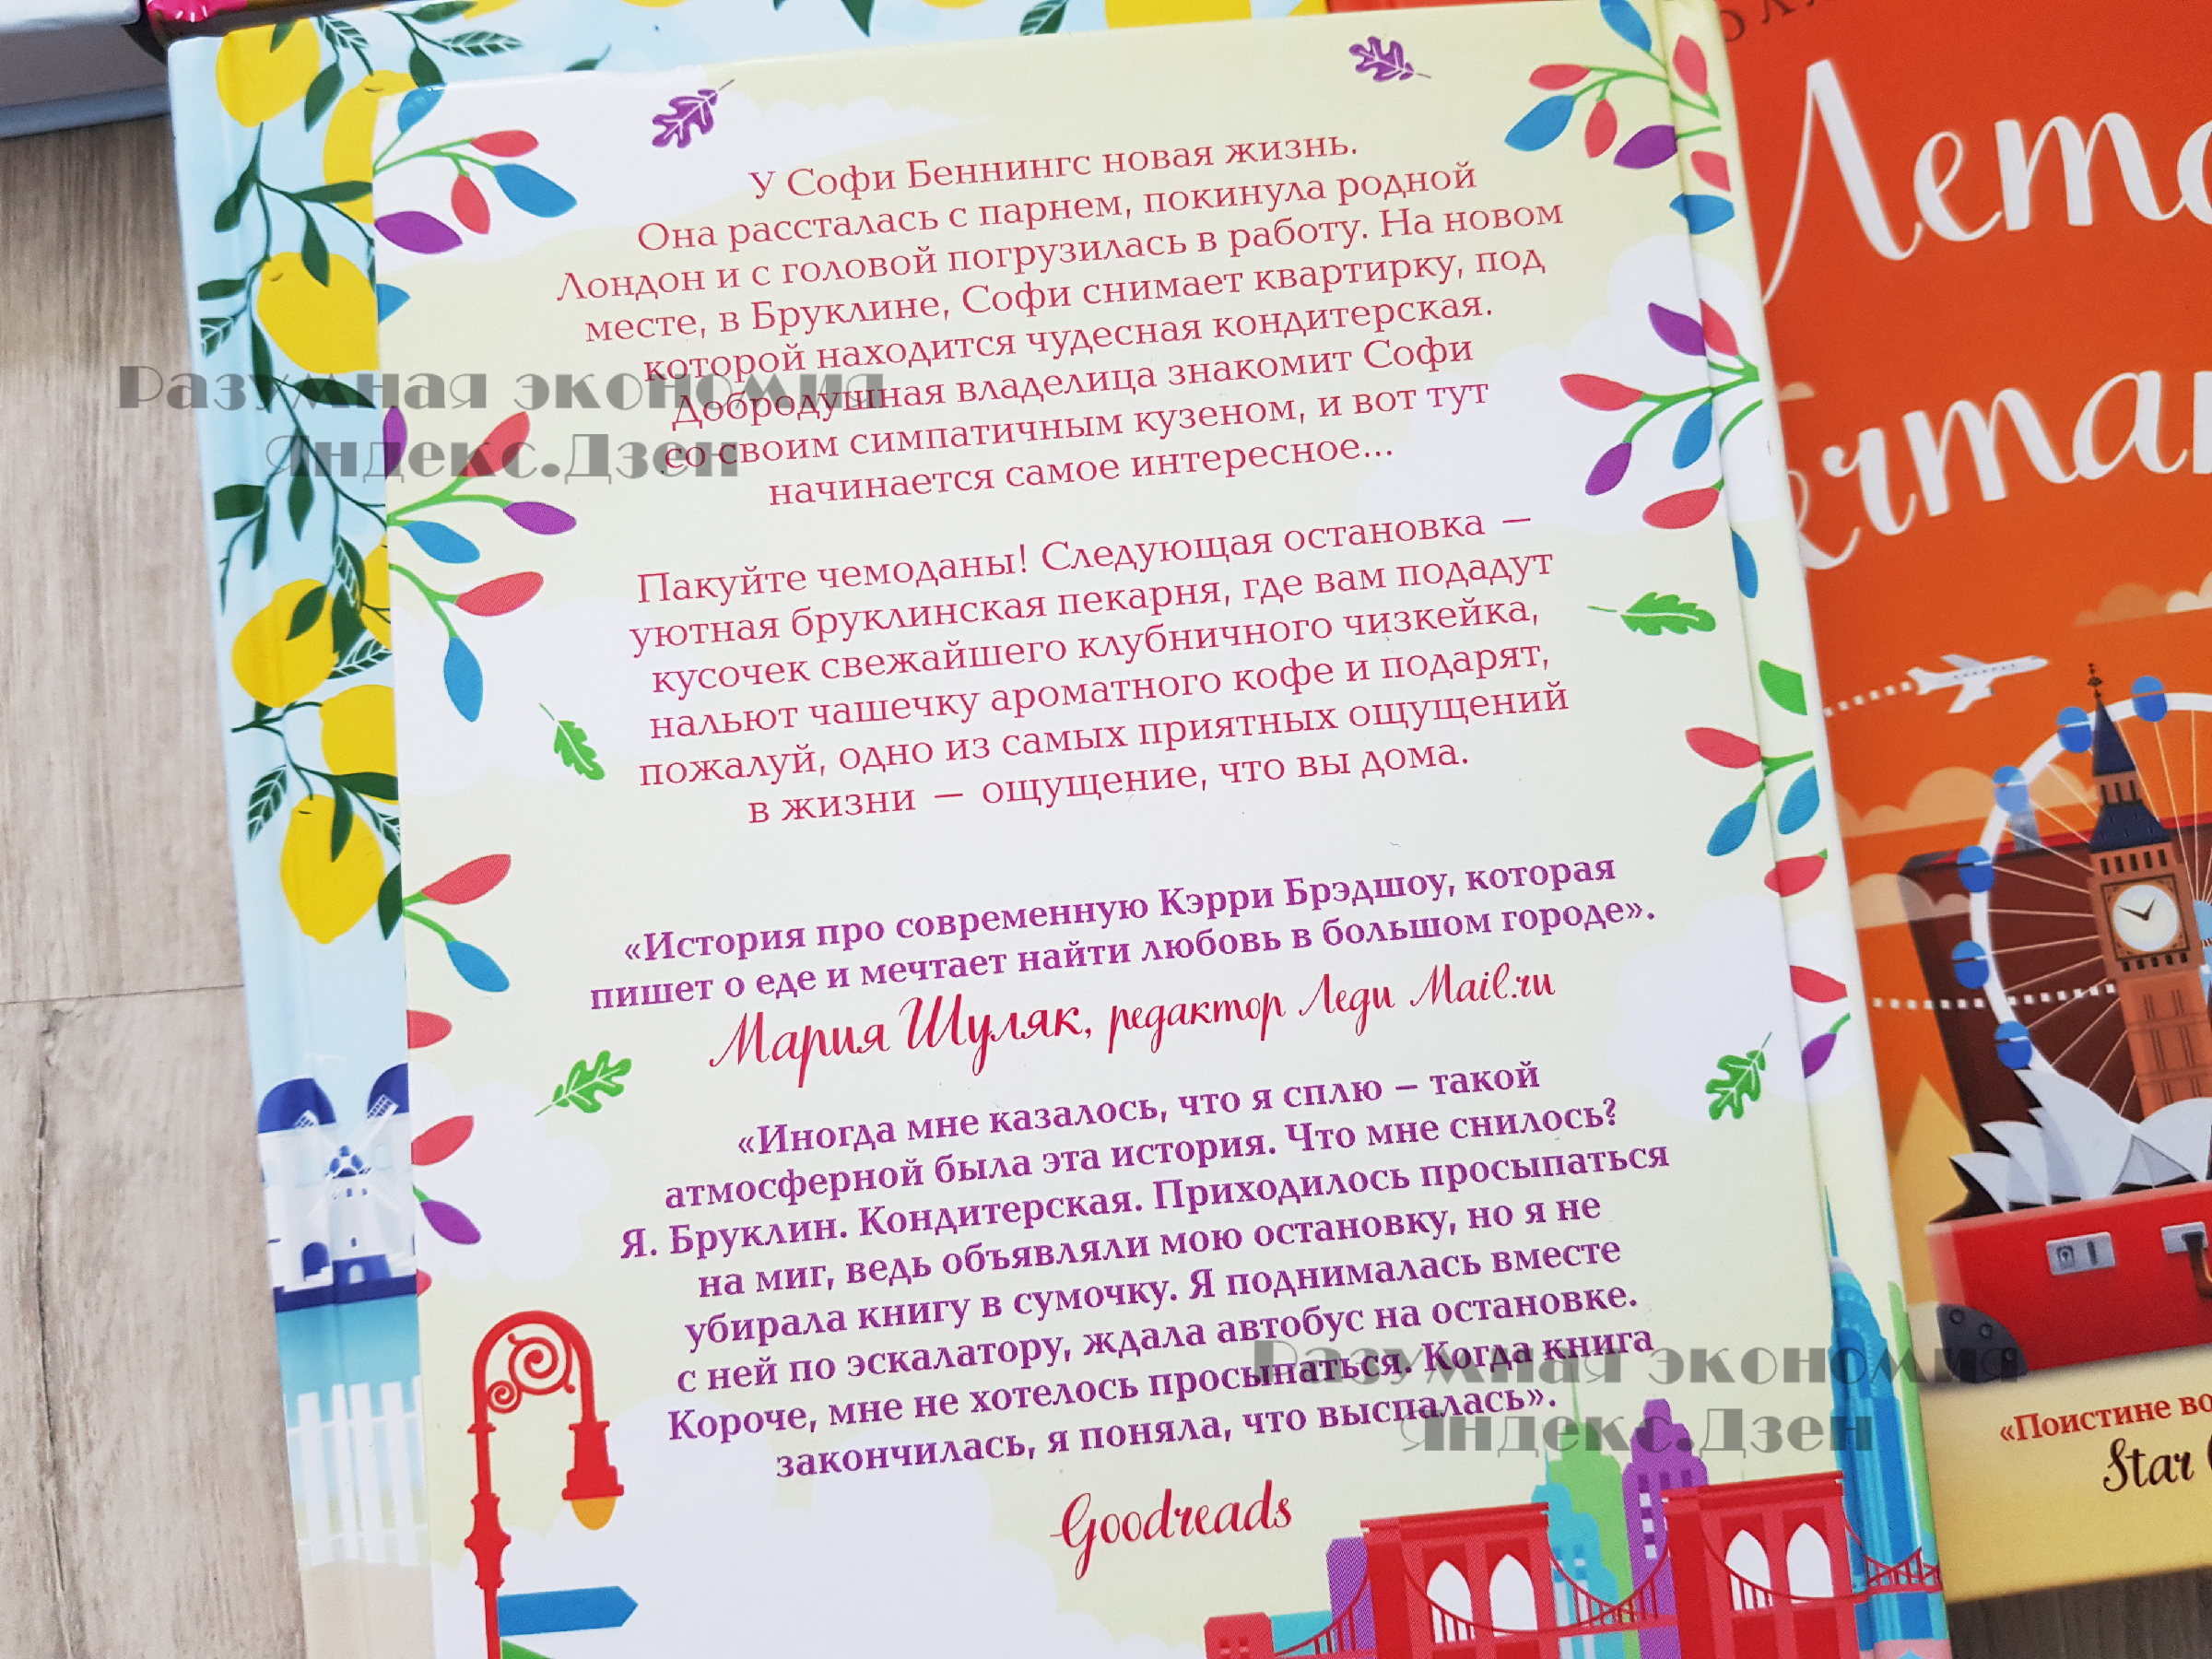 У Софи Беннингс новая жизнь.
Она рассталась с парнем, покинула родной
Лондон и с головой погрузилась в работу. На новом
месте, в Бруклине, Софи снимает квартирку, под
которой находится чудесная кондитерская.
Добродушная владелица знакомит Софи
со своим симпатичным кузеном, и вот тут
начинается самое интересное...
Пакуйте чемоданы! Следующая остановка —
уютная бруклинская пекарня, где вам подадут
кусочек свежайшего клубничного чизкейка,
нальют чашечку ароматного кофе и подарят,
пожалуй, одно из самых приятных ощущений
в жизни — ощущение, что вы дома.
«История про современную Кэрри Брэдшоу, которая
пишет о еде и мечтает найти любовь в большом городе».
Мария Шуляк, редактор Леди Mail.ru
«Иногда мне казалось, что я сплю – такой
атмосферной была эта история. Что мне снилось?
Я. Бруклин. Кондитерская. Приходилось просыпаться
на миг, ведь объявляли мою остановку, но я не
убирала книгу в сумочку. Я поднималась вместе
с ней по эскалатору, ждала автобус на остановке.
Короче, мне не хотелось просыпаться. Когда книга
закончилась, я поняла, что выспалась».
Goodreads
Разумная экономия
Яндекс.Дзен
Разумная экономия
Яндекс.Дзен
«Поистине
Star